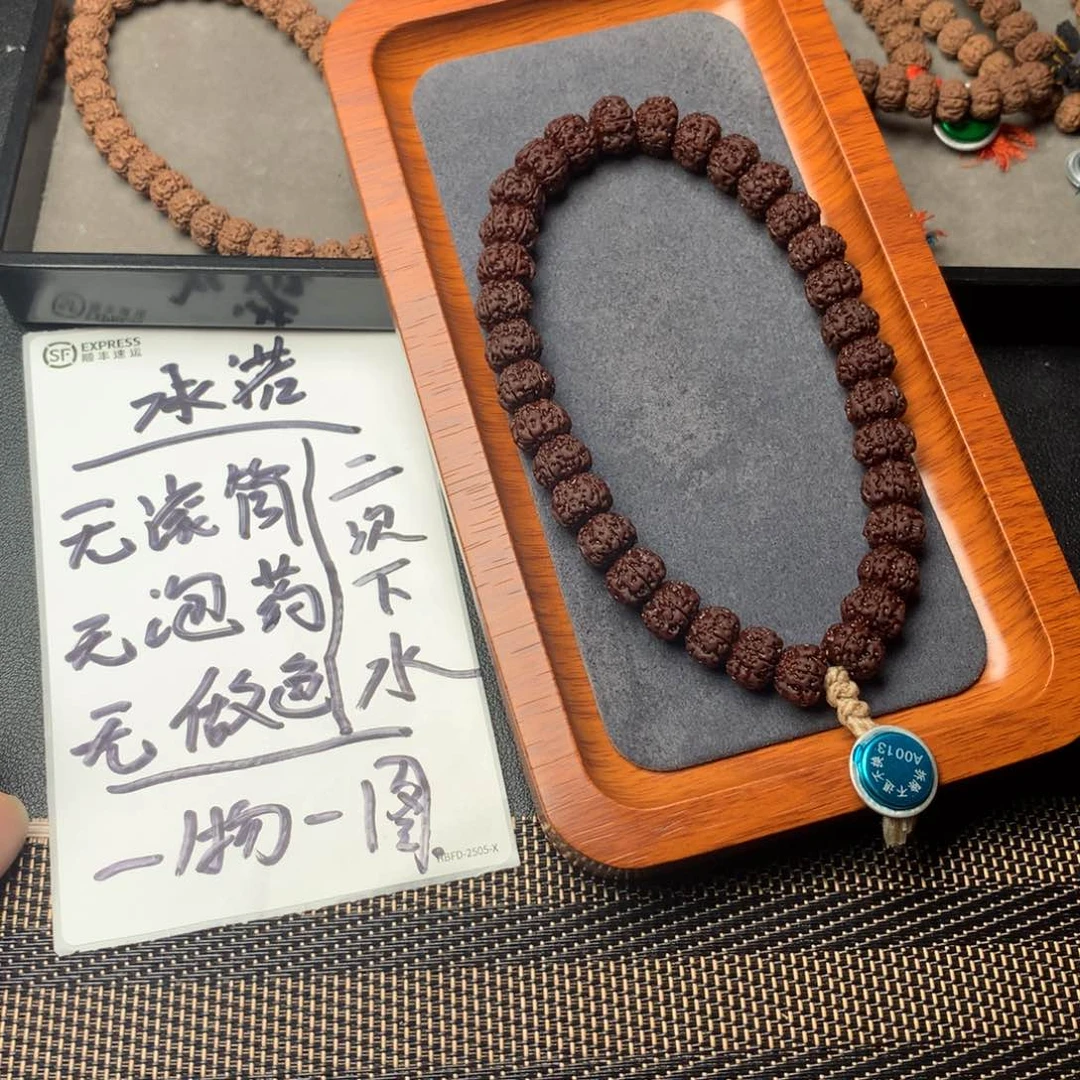 SF EXPRESS
顺丰速运
承诺
无滚筒
无泡药
无做色
二次下水
一物一图
HBFD-2505-X
拆除不退不换
A0013